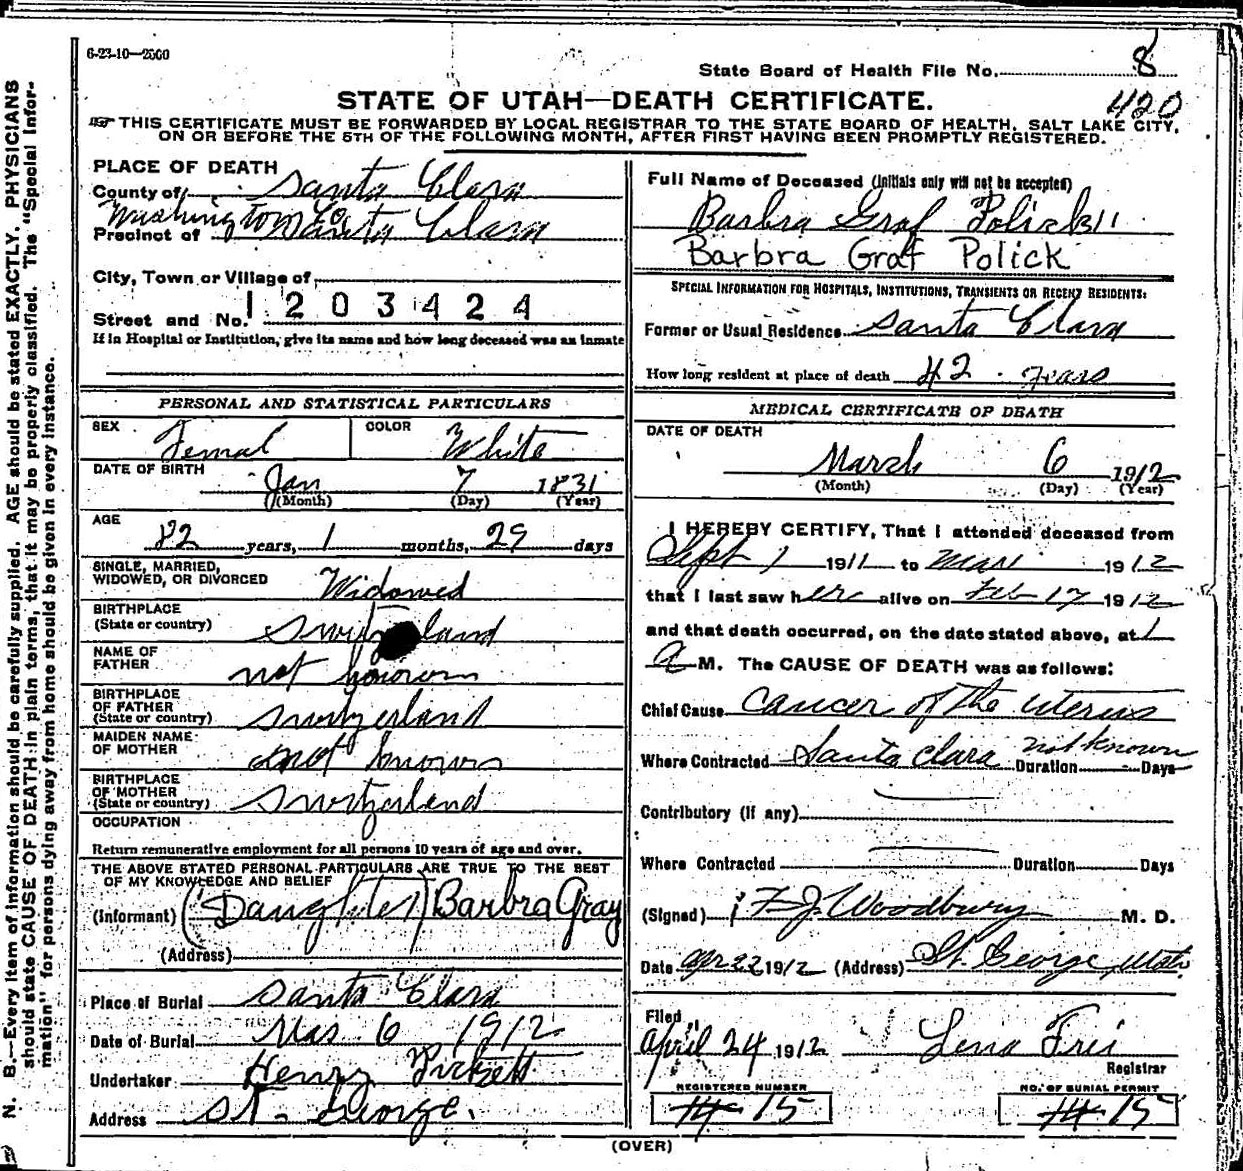 6-23-10—2500
State Board of Health File No. 8
420
STATE OF UTAH—DEATH CERTIFICATE.
THIS CERTIFICATE MUST BE FORWARDED BY LOCAL REGISTRAR TO THE STATE BOARD OF HEALTH, SALT LAKE CITY,
ON OR BEFORE THE 5TH OF THE FOLLOWING MONTH, AFTER FIRST HAVING BEEN PROMPTLY REGISTERED.
PLACE OF DEATH
County of Santa Clara
Washington Co
Precinct of Santa Clara
City, Town or Village of
1203424
Street and No.
If in Hospital or Institution, give its name and how long deceased was an inmate
PERSONAL AND STATISTICAL PARTICULARS
SEX Femal COLOR White
DATE OF BIRTH
Jan 7 1831
(Month) (Day) (Year)
AGE
82 years, 1 months, 29 days
SINGLE, MARRIED,
WIDOWED, OR DIVORCED Widowed
BIRTHPLACE
(State or country) Switzerland
NAME OF
FATHER not known
BIRTHPLACE
OF FATHER
(State or country) Switzerland
MAIDEN NAME
OF MOTHER not known
BIRTHPLACE
OF MOTHER
(State or country) Switzerland
OCCUPATION
Return remunerative employment for all persons 10 years of age and over.
THE ABOVE STATED PERSONAL PARTICULARS ARE TRUE TO THE BEST
OF MY KNOWLEDGE AND BELIEF
(Informant) (Daughter) Barbra Gray
(Address)
Place of Burial Santa Clara
Date of Burial Mar 6 1912
Undertaker Henry Pickett
Address St. George.
Full Name of Deceased (Initials only will not be accepted)
Barbra Graf Polick
Barbra Graf Polick
SPECIAL INFORMATION FOR HOSPITALS, INSTITUTIONS, TRANSIENTS OR RECENT RESIDENTS:
Former or Usual Residence Santa Clara
How long resident at place of death 42 Years
MEDICAL CERTIFICATE OF DEATH
DATE OF DEATH
March 6 1912
(Month) (Day) (Year)
I HEREBY CERTIFY, That I attended deceased from
Sept 1 1911 to Mar 1912
that I last saw her alive on Feb 17 1912
and that death occurred, on the date stated above, at 1
a M. The CAUSE OF DEATH was as follows:
Chief Cause cancer of the uterus
Where Contracted Santa Clara Duration not known Days
Contributory (if any)
Where Contracted Duration Days
(Signed) F. J. Woodbury M. D.
Date Apr 22 1912 (Address) St. George, Utah
Filed
April 24 1912 Lena Frei
Registrar
REGISTERED NUMBER NO. OF BURIAL PERMIT
14 15 14 15
(OVER)
N. B.—Every item of information should be carefully supplied. AGE should be stated EXACTLY. PHYSICIANS
should state CAUSE OF DEATH in plain terms, that it may be properly classified. The "Special Infor-
mation" for persons dying away from home should be given in every instance.